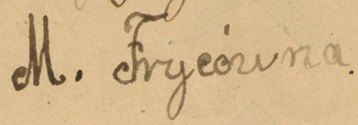 M. Frycówna.